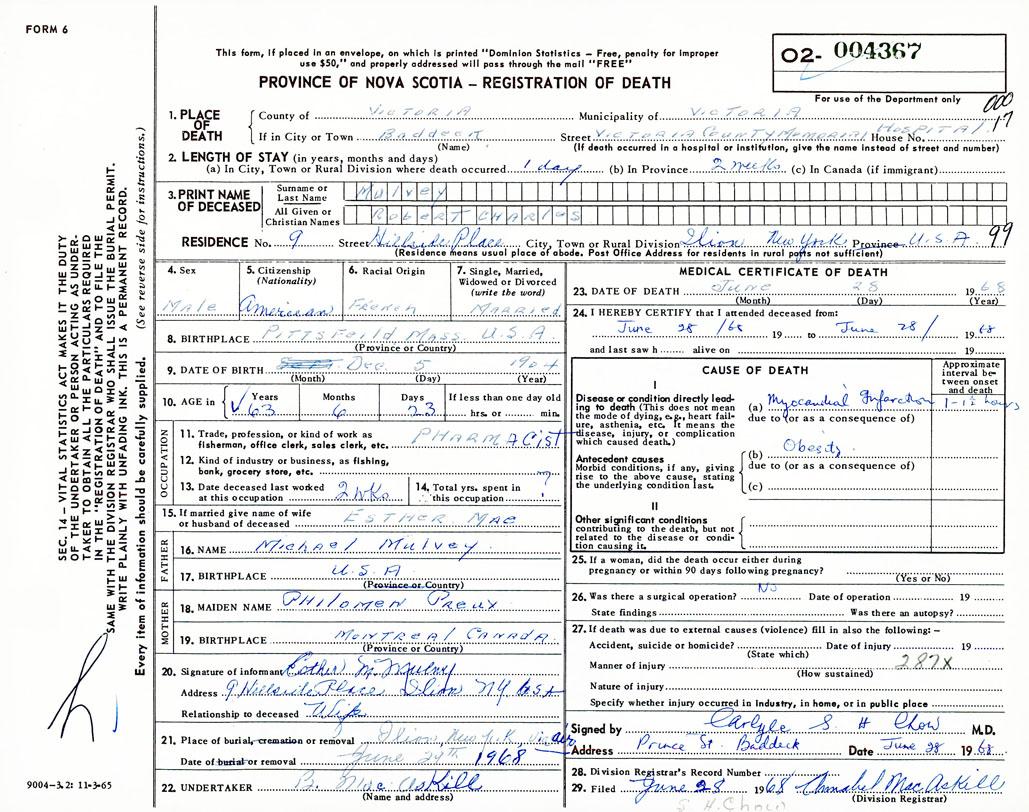 FORM 6
This form, if placed in an envelope, on which is printed "Dominion Statistics – Free, penalty for improper
use $50," and properly addressed will pass through the mail "FREE"
PROVINCE OF NOVA SCOTIA – REGISTRATION OF DEATH
02- 004367
For use of the Department only
000
17
1. PLACE OF DEATH
County of Victoria Municipality of Victoria
If in City or Town Baddeck Street Victoria County Memorial Hospital House No.
(Name) (If death occurred in a hospital or institution, give the name instead of street and number)
2. LENGTH OF STAY (in years, months and days)
(a) In City, Town or Rural Division where death occurred 1 day (b) In Province 2 weeks (c) In Canada (if immigrant)
3. PRINT NAME OF DECEASED
Surname or Last Name Mulvey
All Given or Christian Names Robert Charles
RESIDENCE No. 9 Street Hillside Place City, Town or Rural Division Ilion New York Province U.S.A. 99
(Residence means usual place of abode. Post Office Address for residents in rural parts not sufficient)
4. Sex Male
5. Citizenship (Nationality) American
6. Racial Origin French
7. Single, Married, Widowed or Divorced (write the word) Married
8. BIRTHPLACE Pittsfeild Mass. U.S.A
(Province or Country)
9. DATE OF BIRTH Dec. 5 1904
(Month) (Day) (Year)
10. AGE in Years 63 Months 6 Days 23 If less than one day old hrs. or min.
OCCUPATION
11. Trade, profession, or kind of work as fisherman, office clerk, sales clerk, etc. PHARMACIST
12. Kind of industry or business, as fishing, bank, grocery store, etc. ?
13. Date deceased last worked at this occupation 2 wks
14. Total yrs. spent in this occupation ?
15. If married give name of wife or husband of deceased Esther Mae
FATHER
16. NAME Michael Mulvey
17. BIRTHPLACE U.S.A
(Province or Country)
MOTHER
18. MAIDEN NAME Philomen Preux
19. BIRTHPLACE Montreal Canada
20. Signature of informant Esther M. Mulvey
Address 9 Hillside Place Ilion NY USA
Relationship to deceased Wife
21. Place of burial, cremation or removal Ilion, New York via air
Date of burial or removal June 29th 1968
22. UNDERTAKER B. MacAskill
(Name and address)
MEDICAL CERTIFICATE OF DEATH
23. DATE OF DEATH June 28 1968
(Month) (Day) (Year)
24. I HEREBY CERTIFY that I attended deceased from:
June 28/68 19 to June 28/ 1968
and last saw h alive on 19
CAUSE OF DEATH
Approximate interval between onset and death
I
Disease or condition directly leading to death (This does not mean the mode of dying, e.g., heart failure, asthenia, etc. It means the disease, injury, or complication which caused death.)
(a) Myocardial Infarction 1-1½ hours
due to (or as a consequence of)
Antecedent causes
Morbid conditions, if any, giving rise to the above cause, stating the underlying condition last.
(b) Obesity
due to (or as a consequence of)
(c)
II
Other significant conditions
contributing to the death, but not related to the disease or condition causing it.
25. If a woman, did the death occur either during
pregnancy or within 90 days following pregnancy?
(Yes or No)
26. Was there a surgical operation? No Date of operation 19
State findings Was there an autopsy?
27. If death was due to external causes (violence) fill in also the following: –
Accident, suicide or homicide? Date of injury 19
(State which)
Manner of injury 287X
(How sustained)
Nature of injury
Specify whether injury occurred in industry, in home, or in public place
Signed by Carlyle S H Chow M.D.
Address Prince St. Baddeck Date June 28 1968
28. Division Registrar's Record Number
29. Filed June 28 1968 Annabel MacAskill
(Division Registrar)
S. H. Chow
SEC. 14 – VITAL STATISTICS ACT MAKES IT THE DUTY
OF THE UNDERTAKER OR PERSON ACTING AS UNDER-
TAKER TO OBTAIN ALL THE PARTICULARS REQUIRED
IN THE "REGISTRATION OF DEATH" AND TO FILE THE
SAME WITH THE DIVISION REGISTRAR WHO SHALL ISSUE THE BURIAL PERMIT.
WRITE PLAINLY WITH UNFADING INK. THIS IS A PERMANENT RECORD.
Every item of information should be carefully supplied. (See reverse side for instructions.)
9004-3.2: 11-3-65